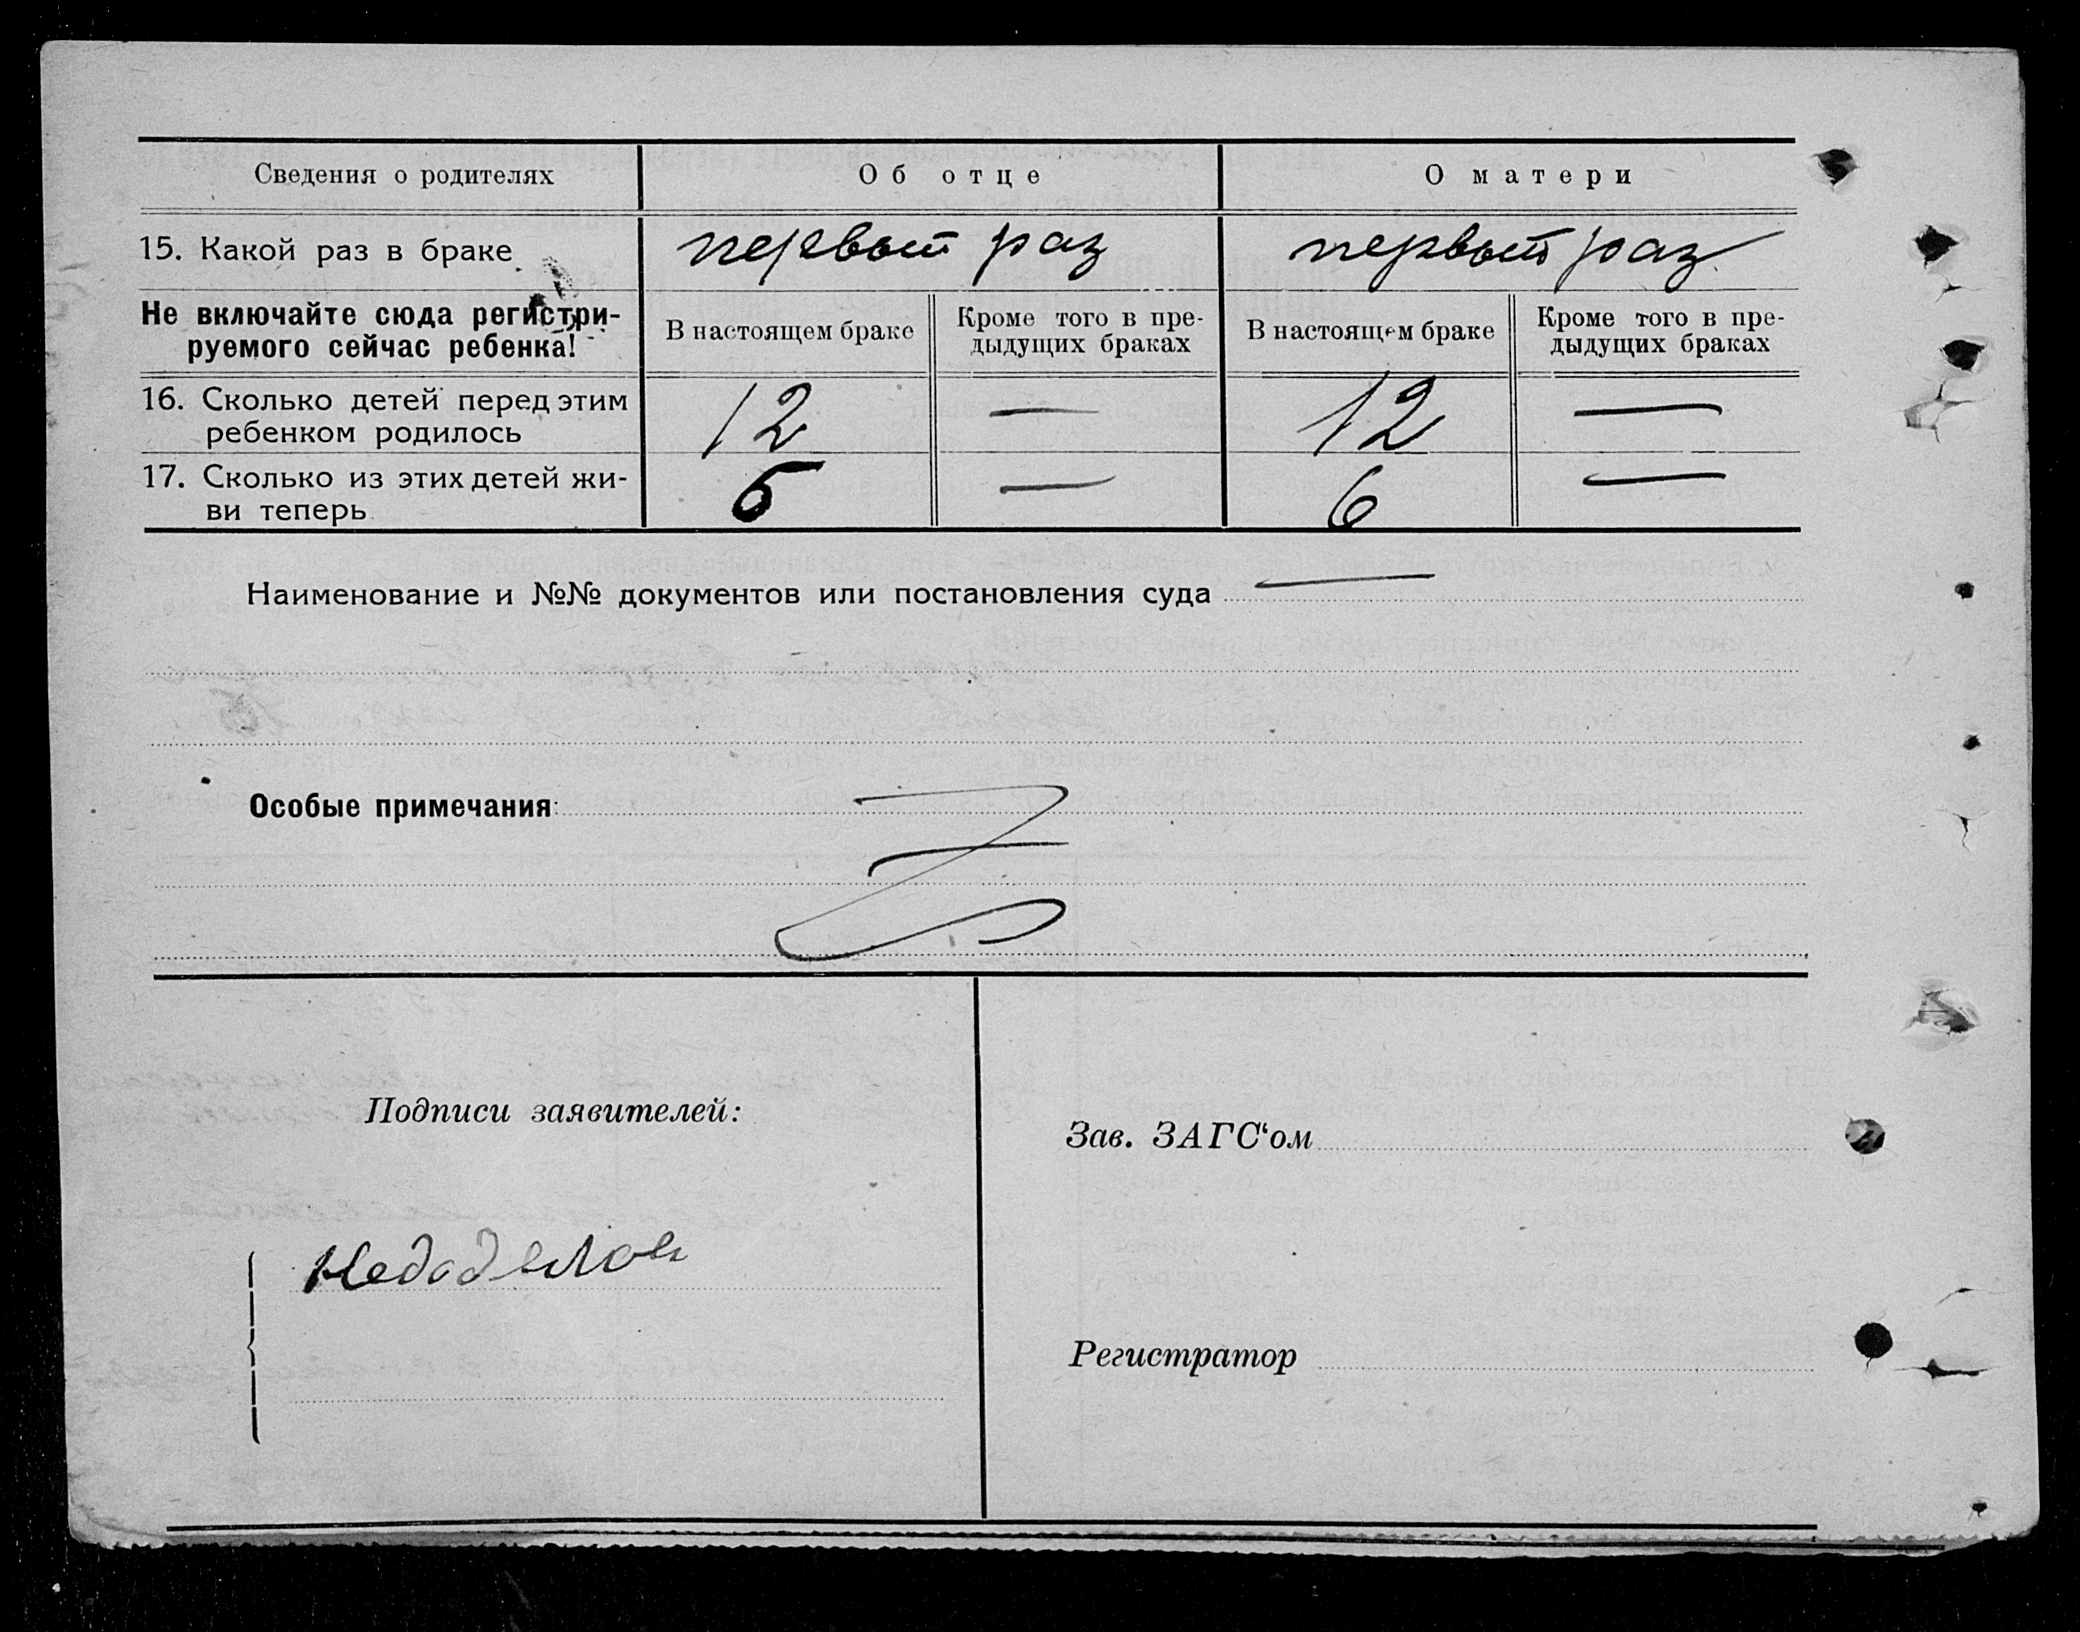 Сведения о родителях Об отце О матери
15. Какой раз в браке первый раз первый раз
Не включайте сюда регистри-
руемого сейчас ребенка!
В настоящем браке Кроме того в пре- В настоящем браке Кроме того в пре-
дыдущих браках дыдущих браках
16. Сколько детей перед этим
ребенком родилось 12 — 12 —
17. Сколько из этих детей жи-
ви теперь 6 — 6 —
Наименование и №№ документов или постановления суда —
Особые примечания:
Подписи заявителей:
Зав. ЗАГС‘ом
Регистратор